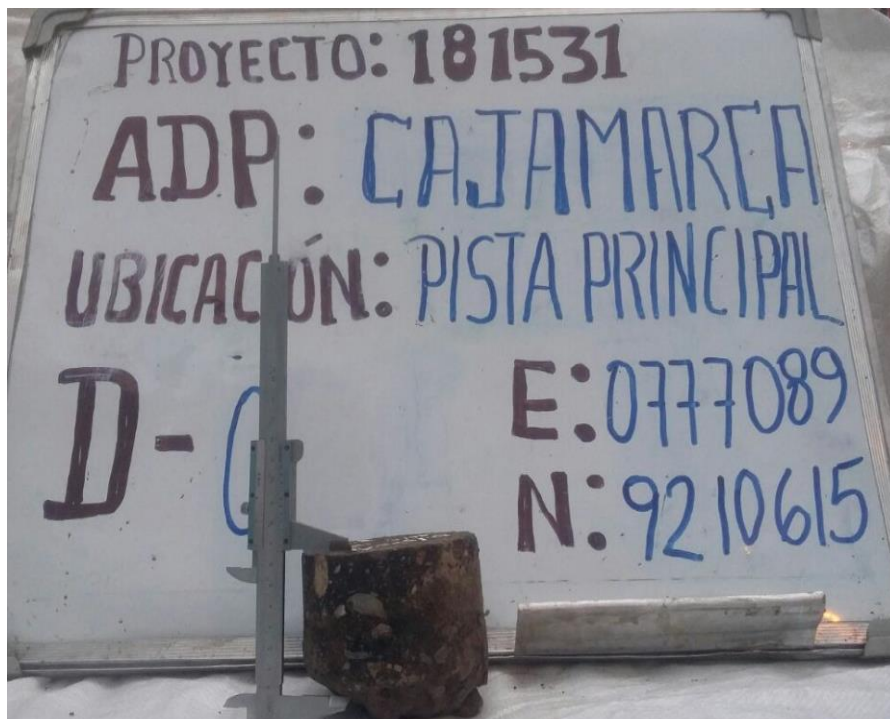 PROYECTO: 181531
ADP: CAJAMARCA
UBICACIÓN: PISTA PRINCIPAL
D-
E: 0777089
N: 9210615